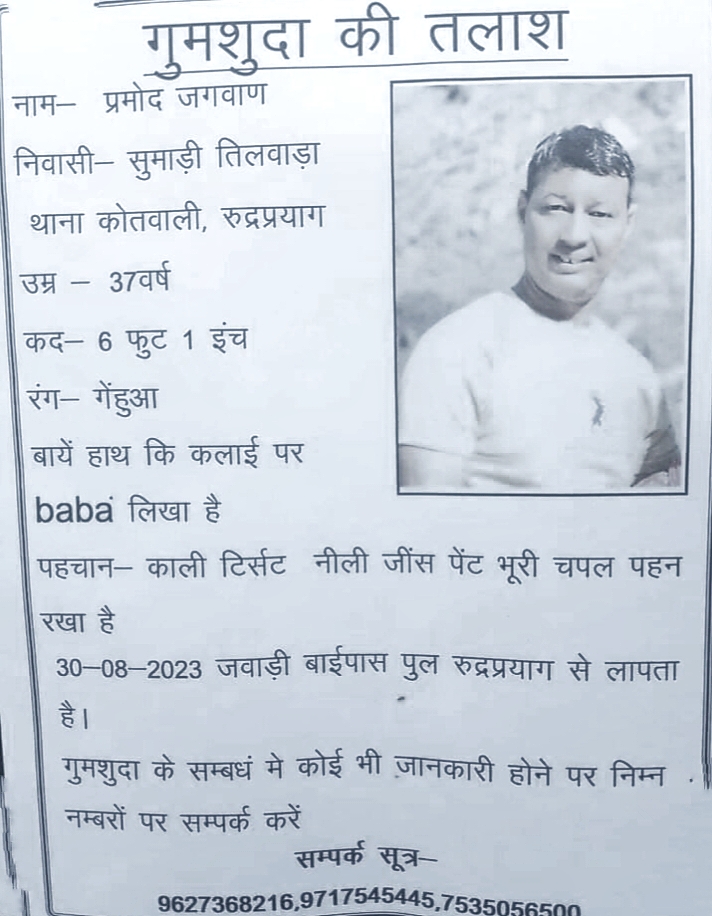 गुमशुदा की तलाश
नाम– प्रमोद जगवाण
निवासी– सुमाड़ी तिलवाड़ा
थाना कोतवाली, रुद्रप्रयाग
उम्र – 37वर्ष
कद– 6 फुट 1 इंच
रंग– गेंहुआ
बायें हाथ कि कलाई पर
baba लिखा है
पहचान– काली टिर्सट नीली जींस पेंट भूरी चपल पहन
रखा है
30–08–2023 जवाड़ी बाईपास पुल रुद्रप्रयाग से लापता
है।
गुमशुदा के सम्बधं मे कोई भी जानकारी होने पर निम्न
नम्बरों पर सम्पर्क करें
सम्पर्क सूत्र–
9627368216,9717545445,7535056500